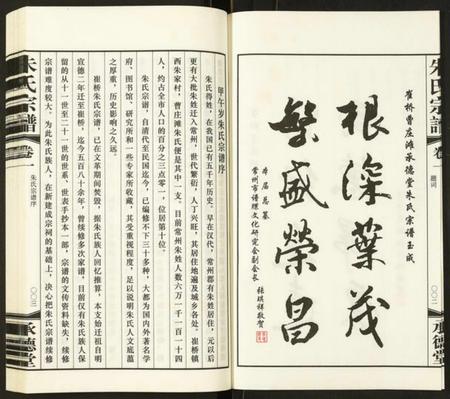 朱氏宗譜
卷
題詞
〇〇二
承德堂
崔桥曹庄滩承德堂朱氏宗谱玉成
根深葉茂
繁盛榮昌
本届总纂
常州市谱牒文化研究会副会长
張琪祥敬贺
甲午岁朱氏宗谱序
朱氏得姓，在我国已有五千年历史。早在汉代，常州郡有朱姓居住，元以后
更有大批朱姓迁入常州，世代繁衍，人丁兴旺，其居住地遍及城乡各处。崔桥镇
西朱家村，曹庄滩朱氏便是其中一支。目前常州朱姓人数六万一千一百一十四
人，约占全市人口的百分之三点零一，位居第十位。
朱氏宗谱，自清代至民国迄今，已编修不下三十多种，大都为国内外著名学
府、图书馆、研究所和一些专家所收藏，其受重视程度，足以说明朱氏人文底蕴
之厚重，历史影响之久远。
崔桥朱氏宗谱，已在文革期间焚毁，据朱氏族人回忆推算，本支始迁祖自明
宣德二年迁至崔桥，迄今五百八十余年，曾续修多次家谱，目前仅有朱氏族人保
留的从十一世至二十一世的世系、世表手抄本一部，宗谱的文传资料缺失，续修
宗谱难度较大。为此朱氏族人，在新建成宗祠的基础上，决心把朱氏宗谱续修
朱氏宗譜
卷一
朱氏宗谱序
〇〇三
承德堂